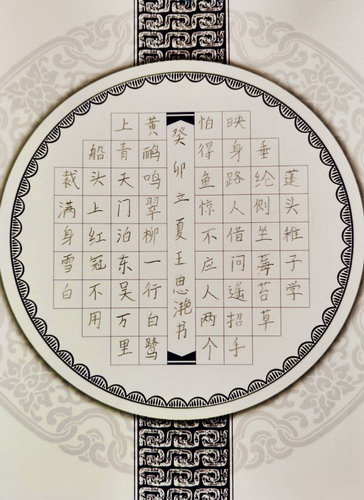 蓬头稚子学
垂纶侧坐莓苔草
映身路人借问遥招手
怕得鱼惊不应人两个
癸卯立夏王思滟书
黄鹂鸣翠柳一行白鹭
上青天门泊东吴万里
船头上红冠不用
裁满身雪白